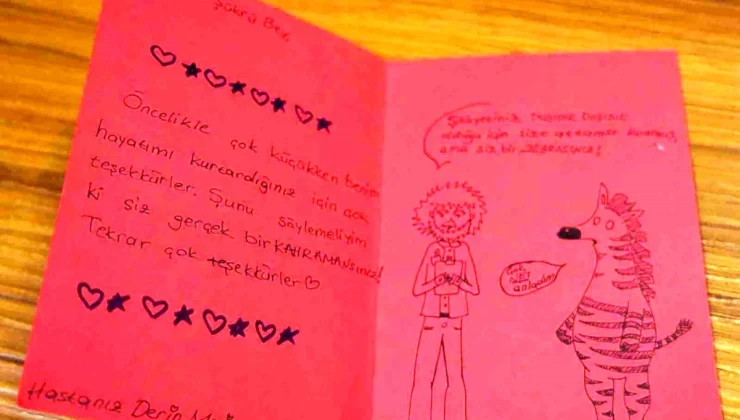 Şükrü Bey,
Öncelikle çok küçükken benim
hayatımı kurtardığınız için çok
teşekkürler. Şunu söylemeliyim
ki siz gerçek bir KAHRAMANsınız!
Tekrar çok teşekkürler
Hastanız Derin
için size
ama siz bir ZEBRASINIZ!
anladım